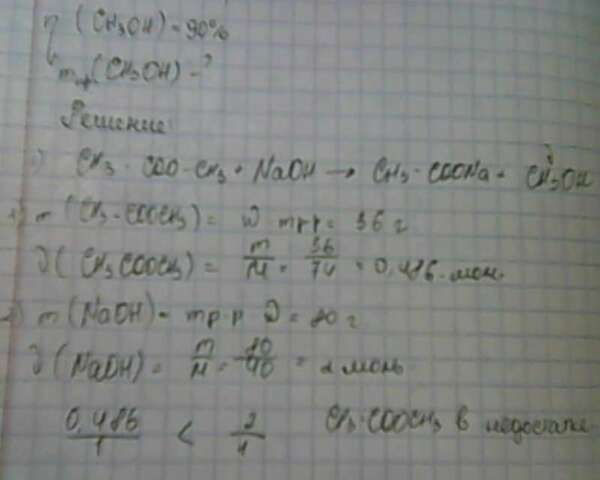 η (CH₃OH) = 90%
m (CH₃OH) - ?
Решение
CH₃ - COO - CH₃ + NaOH → CH₃ - COONa + CH₃OH
m (CH₃ - COOCH₃) = ω mр-р = 36 г
ν (CH₃COOCH₃) = m/M = 36/74 = 0,486 моль
m (NaOH) = mр-р ω = 80 г
ν (NaOH) = m/M = 80/40 = 2 моль
0,486/1 < CH₃-COOCH₃ в недостатке